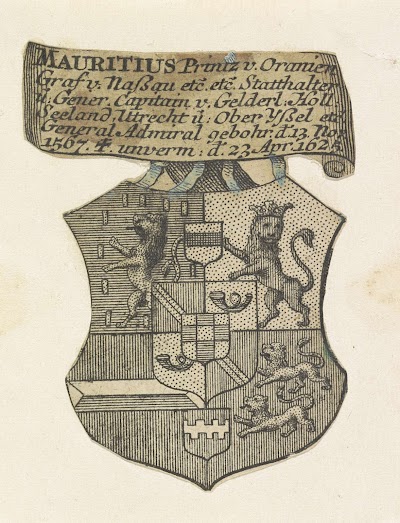 MAURITIUS Printz v. Oranien
Graf v. Naßau etc. etc. Statthalter
u: Gener. Capitain v. Gelderl: Holl
Seeland, Utrecht ü: Ober Yßel etc
General Admiral gebohr. d. 13. Nov
1567. unverm: d. 23. Apr. 1625.